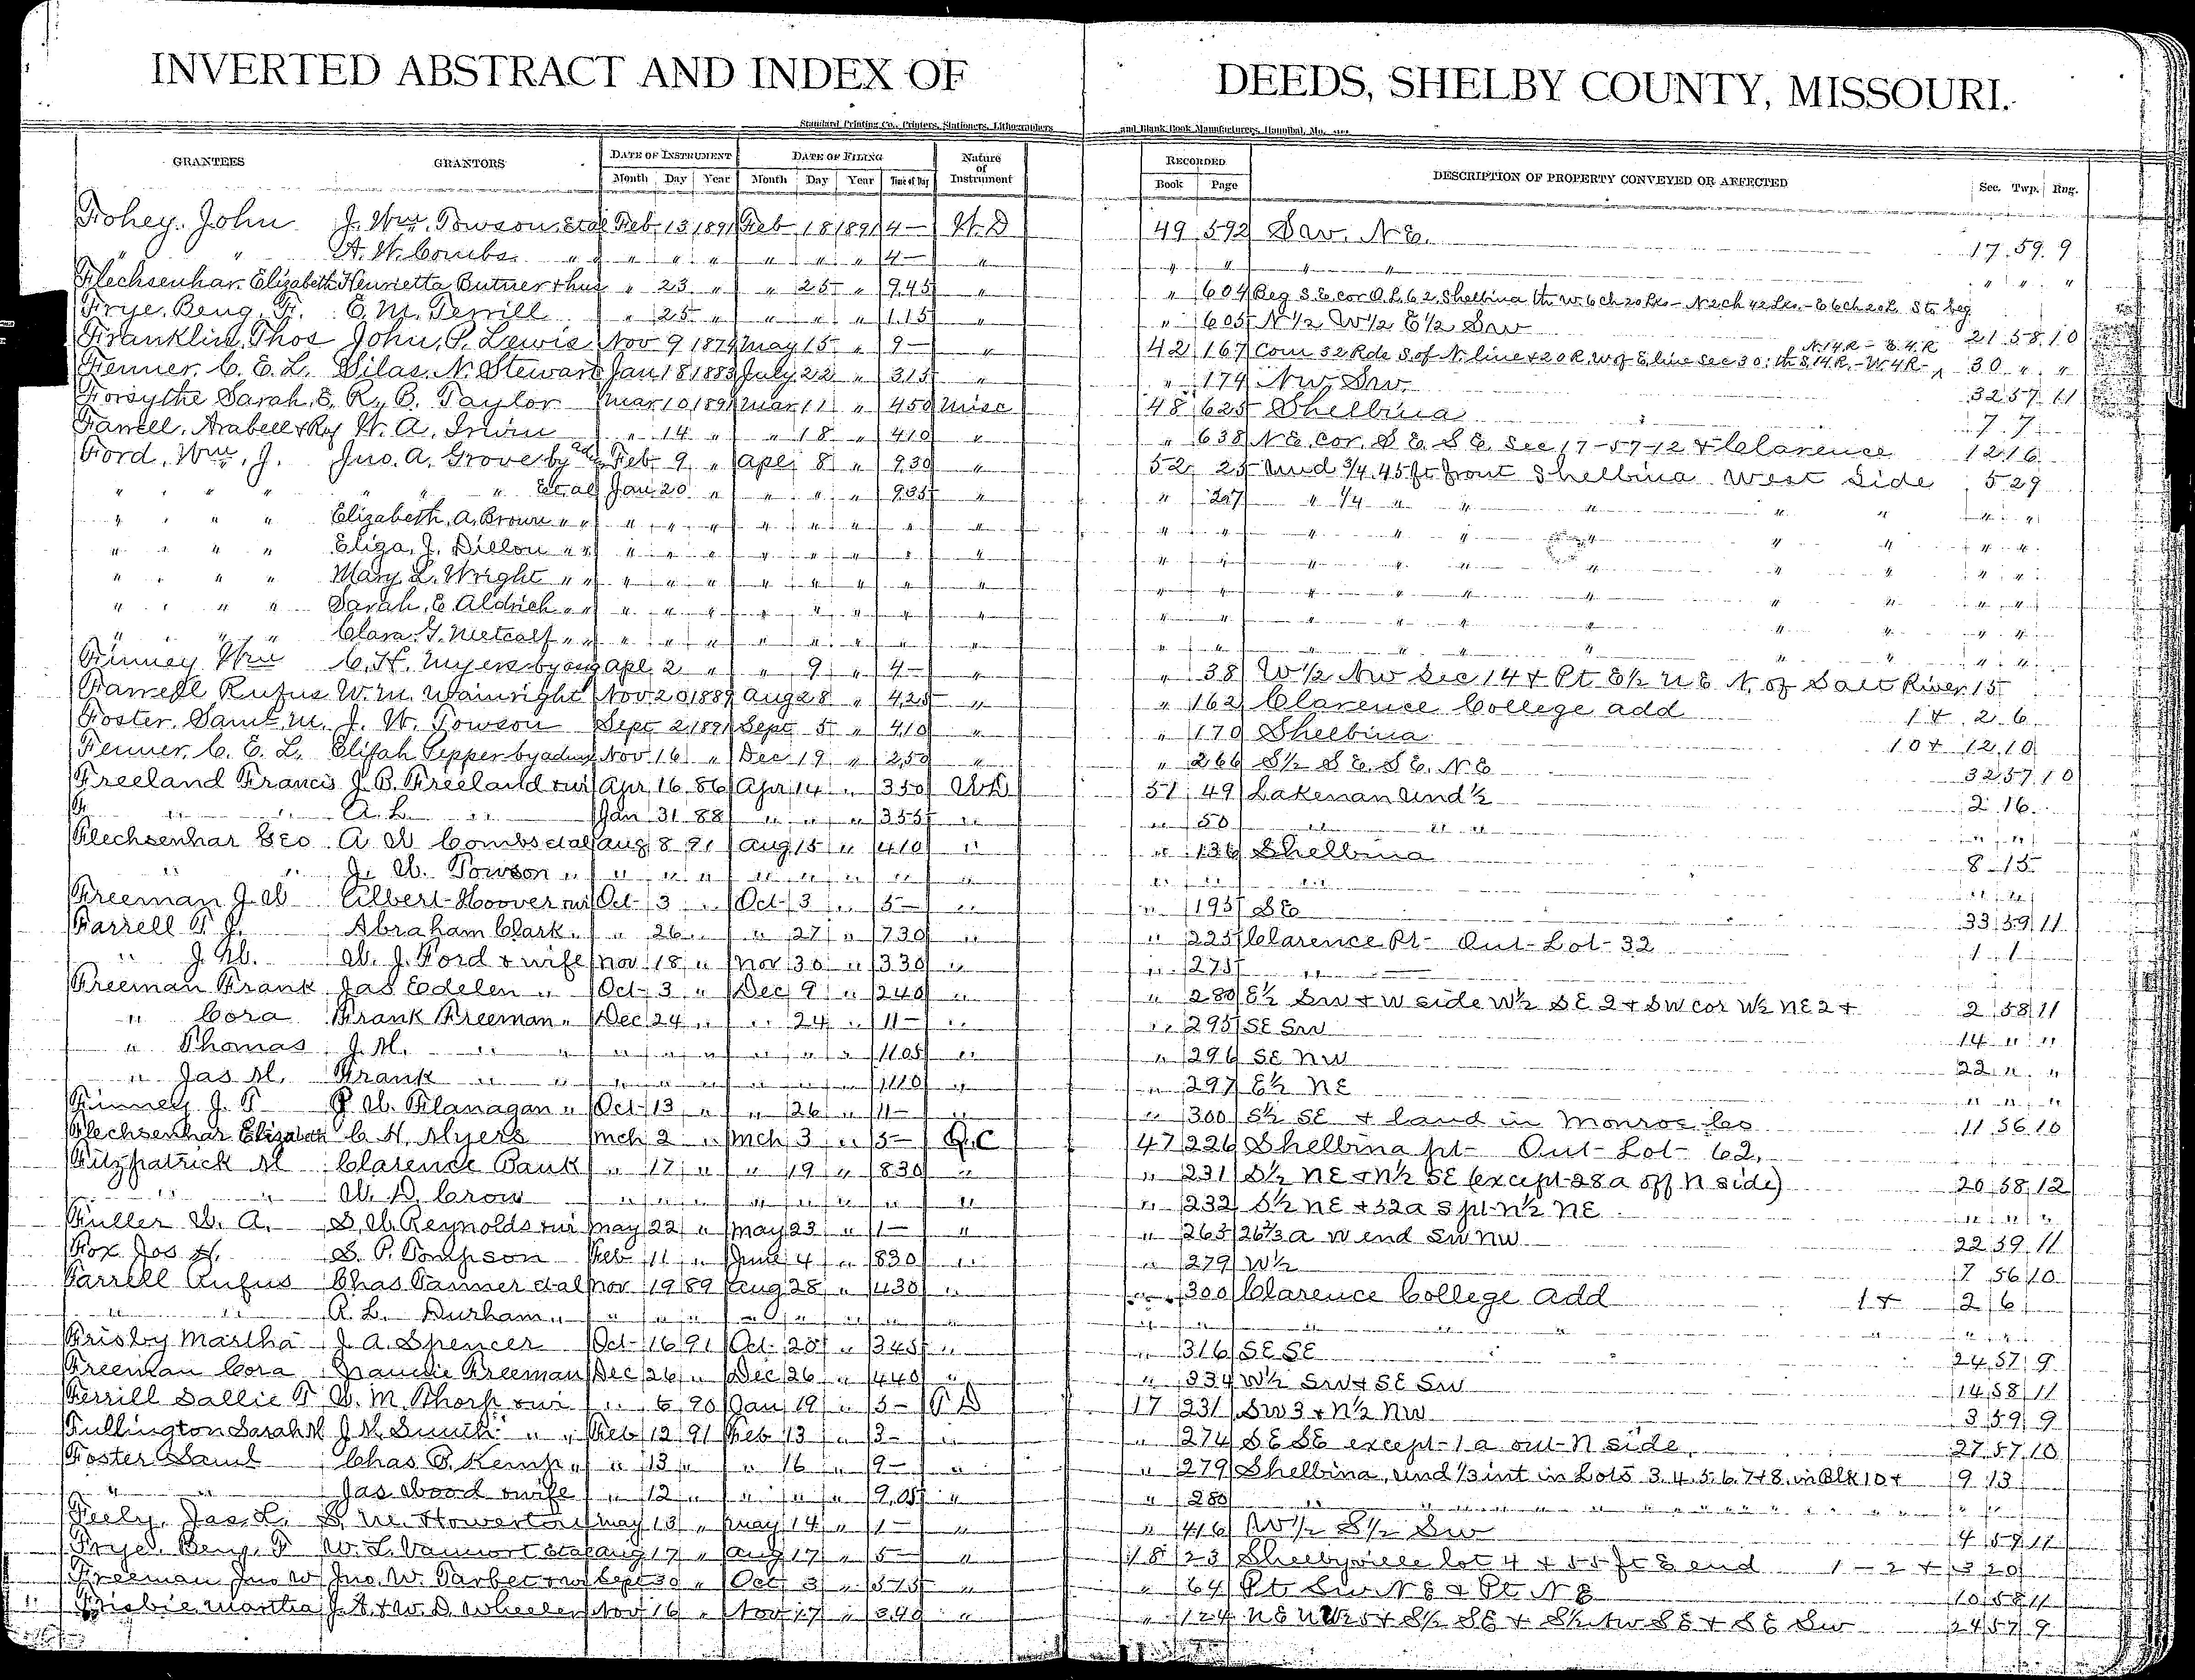 INVERTED ABSTRACT AND INDEX OF DEEDS, SHELBY COUNTY, MISSOURI.
Standard Printing Co., Printers, Stationers, Lithographers and Blank Book Manufacturers, Hannibal, Mo.
GRANTEES GRANTORS DATE OF INSTRUMENT DATE OF FILING Nature of Instrument RECORDED DESCRIPTION OF PROPERTY CONVEYED OR AFFECTED Sec. Twp. Rng.
Month Day Year Month Day Year Time of Day Book Page
Fohey, John J. Wm. Towson, et al Feb 13 1891 Feb 18 1891 4- W.D 49 592 Sw. NE. 17 59 9
" " A. W. Combs " " " " " " " " 4- " " " " " " " "
Flechsenhar Elizabeth Henrietta Butner & hus " 23 " " 25 " 945 " " 604 Beg S.E cor O.L. 62, Shelbina th W. 6ch 20 Lks - N 2ch 42 Lks. - E 6ch 20 L S to beg
Frye, Benj. F. E. M. Terrill " 25 " " " " 1.15 " " 605 N 1/2 W 1/2 E 1/2 Sw 21 58 10
Franklin, Thos John, P. Lewis Nov 9 1874 May 15 " 9- " 42 167 Com 32 Rds S. of N. line & 20 R. W of E line Sec 30; th S. 14 R. - W. 4 R - N. 14 R - E. 4. R 30 " "
Fenner, C. E. L. Silas. N. Stewart Jan 18 1883 July 22 " 315 " " 174 Nw. Sw. 32 57 11
Forsythe Sarah. E. R. B. Taylor Mar 10 1891 Mar 11 " 450 Misc 48 625 Shelbina 7 7
Farrell, Arabell & Ruf W. A. Irwin " 14 " " 18 " 410 " " 638 N.E. cor. S.E. S.E. Sec 17-57-12 & Clarence 12 16
Ford, Wm. J. Jno. A. Grove by adm Feb 9 " Apl 8 " 930 " 52 25 Und 3/4 45 ft front Shelbina West Side 5 29
" " " " " " et al Jan 20 " " " " 935 " " 27 " 1/4 " " " " " "
" " " Elizabeth. A. Brown " " " " " " " " " " " " " " " " " " "
" " " Eliza. J. Dillon " " " " " " " " " " " " " " " " " " "
" " " Mary. L. Wright " " " " " " " " " " " " " " " " " " "
" " " Sarah. E. Aldrich " " " " " " " " " " " " " " " " " " "
" " " Clara. G. Metcalf " " " " " " " " " " " " " " " " " " "
Finney Wm C. H. Myers by Apl 2 " " 9 " 4- " " 38 W 1/2 Nw Sec 14 & Pt E 1/2 N E N. of Salt River 15
Farrell Rufus W. M. Wainright Nov 20 1889 Aug 28 " 425 " " 162 Clarence College add 1 & 2 6
Foster, Saml. M. J. W. Towson Sept 2 1891 Sept 5 " 410 " " 170 Shelbina 10 & 12 10
Fenner, C. E. L. Elijah Pepper by adm Nov 16 " Dec 19 " 250 " " 266 S 1/2 S E. S E. N. E 32 57 10
Freeland Francis J. B. Freeland & wi Apr 16 86 Apr 14 " 350 WD 51 49 Lakenan Und 1/2 2 16
" " A. L. " Jan 31 88 " " " 355 " " 50 " " " " "
Flechsenhar Geo A W Combs et al Aug 8 91 Aug 15 " 410 " " 136 Shelbina 8 15
" " J. W. Towson " " " " " " " " " " " " " "
Freeman J. W Albert Hoover & wi Oct 3 " Oct 3 " 5- " " 195 SE 33 59 11
Farrell T J. Abraham Clark " " 26 " " 27 " 730 " " 225 Clarence Pt Out-Lot-32 1 1
" J. W. W. J. Ford & wife Nov 18 " Nov 30 " 330 " " 275 "
Freeman Frank Jas Edelen " Oct 3 " Dec 9 " 240 " " 280 E 1/2 SW & W side W 1/2 SE 2 & SW cor W 1/2 NE 2 & 2 58 11
" Cora Frank Freeman " Dec 24 " " 24 " 11- " " 295 SE SW 14 " "
" Thomas J. M. " " " " " " " " 1105 " " 296 SE NW 22 " "
" Jas M. Frank " " " " " " " " 1110 " " 297 E 1/2 NE " " "
Finney J. T P. W. Flanagan " Oct 13 " " 26 " 11- " " 300 S 1/2 SE & land in Monroe Co 11 56 10
Flechsenhar Elizabeth C H. Myers Mch 2 " Mch 3 " 5- Q.C 47 226 Shelbina pt- Out-Lot-62.
Fitzpatrick M Clarence Bank " 17 " " 19 " 830 " " 231 S 1/2 NE & N 1/2 SE (except 28 a off N side) 20 58 12
" " W. D. Crow " " " " " " " " " 232 S 1/2 NE & 32 a S pt N 1/2 NE " " "
Fuller W. A. S. W. Reynolds & wi May 22 " May 23 " 1- " " 263 26 2/3 a W end SW NW 22 59 11
Fox Jos H. S. P. Tompson Feb 11 " June 4 " 830 " " 279 W 1/2 7 56 10
Farrell Rufus Chas Tanner et al Nov 19 89 Aug 28 " 430 " " 300 Clarence College Add 1 & 2 6
" " R. L. Durham " " " " " " " " " " " " " " " "
Frisby Martha J. A. Spencer Oct 16 91 Oct 20 " 345 " " 316 SE SE 24 57 9
Freeman Cora Freeman Dec 26 " Dec 26 " 440 " " 334 W 1/2 SW & SE SW 14 58 11
Ferrill Sallie T W. M. Thorp & wi " 6 90 Jan 19 " 5- T D 17 231 SW 3 & N 1/2 NW 3 59 9
Fullington Sarah M J. M. Smith " " Feb 12 91 Feb 13 " 3- " " 274 SE SE except 1 a out N side 27 57 10
Foster Saml Chas B. Kemp " " 13 " " 16 " 9- " " 279 Shelbina, und 1/3 int in Lots 3. 4. 5. 6. 7 & 8. in Blk 10 & 9 13
" " Jas Wood & wife " 12 " " " " 9.05 " " 280 " " " " "
Feely, Jas. L. S. M. Howerton May 13 " May 14 " 1- " " 416 W 1/2 S 1/2 Sw 4 59 11
Frye, Benj. F W. L. Vannort et al Aug 17 " Aug 17 " 5- " 18 23 Shelbyville lot 4 & 55 ft E end 1 - 2 & 3 20
Freeman Jno W Jno. W. Tarbet & wi Sept 30 " Oct 3 " 575 " " 64 Pt Sw N E & Pt N E 10 58 11
Frisbie, Martha J. A. & W. D. Wheeler Nov 16 " Nov 17 " 340 " " 124 & S 1/2 SE & S 1/2 Nw S E & S E Sw 24 57 9